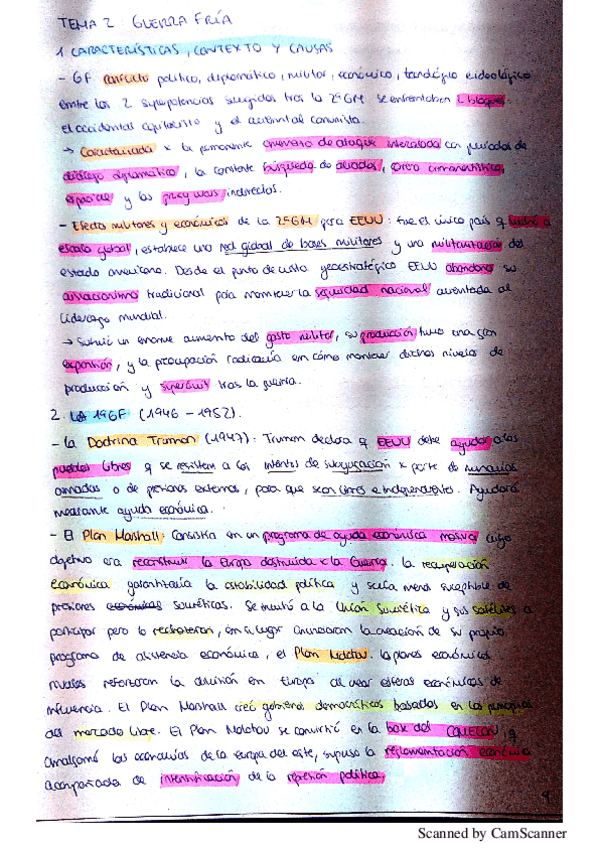 TEMA 2 GUERRA FRÍA
1 CARACTERÍSTICAS, CONTEXTO Y CAUSAS
- GF conflicto político, diplomático, militar, económico, tecnológico e ideológico
entre las 2 superpotencias surgidas tras la 2ªGM se enfrentaban 2 bloques:
el occidental capitalista y el oriental comunista.
→ Caracterizada x la permanente amenaza de ataque intercalada con períodos de
diálogo diplomático, la constante búsqueda de aliados, carrera armamentística,
espacial y las proxy wars indirectas.
- Efectos militares y económicos de la 2ªGM para EEUU: fue el único país q luchó a
escala global, establece una red global de bases militares y una militarización del
estado americano. Desde el punto de vista geoestratégico EEUU abandona su
aislacionismo tradicional para mantener la seguridad nacional orientada al
liderazgo mundial.
→ Sufrió un enorme aumento del gasto militar, su producción tuvo una gran
expansión, y la preocupación radicaría en cómo mantener dichos niveles de
producción y superávit tras la guerra.
2. La 1ªGF (1946 - 1952).
- La Doctrina Truman (1947): Truman declara q EEUU debe ayudar a los
pueblos libres q se resisten a los intentos de subyugación x parte de minorías
armadas o de presiones externas, para que sean libres e independientes. Ayudará
mediante ayuda económica.
- El Plan Marshall: Consistía en un programa de ayuda económica masiva cuyo
objetivo era reconstruir la Europa destruida x la Guerra. La recuperación
económica garantizaría la estabilidad política y sería menos susceptible de
presiones económicas soviéticas. Se invitó a la Unión Soviética y sus satélites a
participar pero lo rechazaron, en su lugar anunciaron la creación de su propio
programa de asistencia económica, el Plan Molotov. Los planes económicos
rivales reforzaron la división en Europa al crear esferas económicas de
influencia. El Plan Marshall creó gobiernos democráticos basados en los principios
del mercado libre. El Plan Molotov se convirtió en la base del COMECON, q
amalgamó las economías de la Europa del este, supuso la reglamentación económica
acompañada de intensificación de la represión política.
Scanned by CamScanner